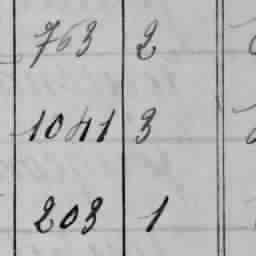 763 2
1041 3
203 1